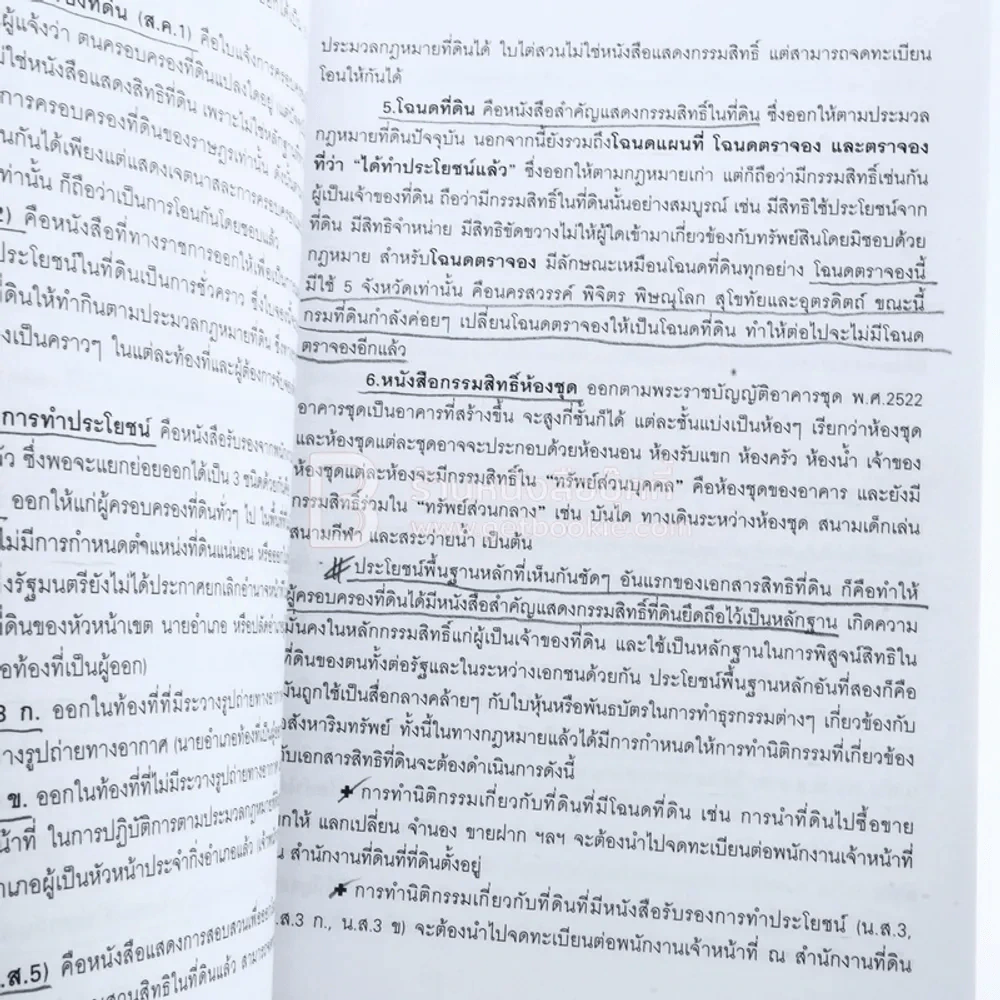 (ส.ค.1) คือใบแจ้งการครอบครอง
ผู้แจ้งว่า ตนครอบครองที่ดินแปลงใดอยู่
ไม่ใช่หนังสือแสดงสิทธิที่ดิน เพราะไม่ใช่หลักฐาน
การครอบครองที่ดินของราษฎรเท่านั้น
นกันได้เพียงแต่แสดงเจตนาสละการครอบครอง
ท่านั้น ก็ถือว่าเป็นการโอนกันโดยชอบแล้ว
2) คือหนังสือที่ทางราชการออกให้เพื่อเป็น
ประโยชน์ในที่ดินเป็นการชั่วคราว
ที่ดินให้ทำกินตามประมวลกฎหมายที่ดิน
งเป็นคราวๆ ในแต่ละท้องที่และผู้ต้องการ
การทำประโยชน์ คือหนังสือรับรองจาก
ว ซึ่งพอจะแยกย่อยออกได้เป็น 3 ชนิดด้วยกัน
ออกให้แก่ผู้ครอบครองที่ดินทั่วๆ ไป
ไม่มีการกำหนดตำแหน่งที่ดินแน่นอน
งรัฐมนตรียังไม่ได้ประกาศยกเลิกอำนาจหน้าที่
ที่ดินของหัวหน้าเขต นายอำเภอ หรือปลัดอำเภอ
อท้องที่เป็นผู้ออก)
3 ก. ออกในท้องที่ที่มีระวางรูปถ่ายทางอากาศ
างรูปถ่ายทางอากาศ (นายอำเภอท้องที่เป็นผู้ออก
ข. ออกในท้องที่ที่ไม่มีระวางรูปถ่ายทางอากาศ
น้าที่ ในการปฏิบัติการตามประมวลกฎหมายที่ดิน
ำเภอผู้เป็นหัวหน้าประจำกิ่งอำเภอแล้ว
.ส.5) คือหนังสือแสดงการสอบสวนเพื่อออก
ประมวลกฎหมายที่ดินได้ ใบไต่สวนไม่ใช่หนังสือแสดงกรรมสิทธิ์ แต่สามารถจดทะเบียน
โอนให้กันได้
5.โฉนดที่ดิน คือหนังสือสำคัญแสดงกรรมสิทธิ์ในที่ดิน ซึ่งออกให้ตามประมวล
กฎหมายที่ดินปัจจุบัน นอกจากนี้ยังรวมถึงโฉนดแผนที่ โฉนดตราจอง และตราจอง
ที่ว่า “ได้ทำประโยชน์แล้ว” ซึ่งออกให้ตามกฎหมายเก่า แต่ก็ถือว่ามีกรรมสิทธิ์เช่นกัน
ผู้เป็นเจ้าของที่ดิน ถือว่ามีกรรมสิทธิ์ในที่ดินนั้นอย่างสมบูรณ์ เช่น มีสิทธิใช้ประโยชน์จาก
ที่ดิน มีสิทธิจำหน่าย มีสิทธิขัดขวางไม่ให้ผู้ใดเข้ามาเกี่ยวข้องกับทรัพย์สินโดยมิชอบด้วย
กฎหมาย สำหรับโฉนดตราจอง มีลักษณะเหมือนโฉนดที่ดินทุกอย่าง โฉนดตราจองนี้
มีใช้ 5 จังหวัดเท่านั้น คือนครสวรรค์ พิจิตร พิษณุโลก สุโขทัยและอุตรดิตถ์ ขณะนี้
กรมที่ดินกำลังค่อยๆ เปลี่ยนโฉนดตราจองให้เป็นโฉนดที่ดิน ทำให้ต่อไปจะไม่มีโฉนด
ตราจองอีกแล้ว
6.หนังสือกรรมสิทธิ์ห้องชุด ออกตามพระราชบัญญัติอาคารชุด พ.ศ.2522
อาคารชุดเป็นอาคารที่สร้างขึ้น จะสูงกี่ชั้นก็ได้ แต่ละชั้นแบ่งเป็นห้องๆ เรียกว่าห้องชุด
และห้องชุดแต่ละชุดอาจจะประกอบด้วยห้องนอน ห้องรับแขก ห้องครัว ห้องน้ำ เจ้าของ
ห้องชุดแต่ละห้องจะมีกรรมสิทธิ์ใน “ทรัพย์ส่วนบุคคล” คือห้องชุดของอาคาร และยังมี
กรรมสิทธิ์ร่วมใน “ทรัพย์ส่วนกลาง” เช่น บันได ทางเดินระหว่างห้องชุด สนามเด็กเล่น
สนามกีฬา และสระว่ายน้ำ เป็นต้น
ร้านหนังสือบุ๊คกี้
www.getbookie.com
ประโยชน์พื้นฐานหลักที่เห็นกันชัดๆ อันแรกของเอกสารสิทธิที่ดิน ก็คือทำให้
ผู้ครอบครองที่ดินได้มีหนังสือสำคัญแสดงกรรมสิทธิ์ที่ดินยึดถือไว้เป็นหลักฐาน เกิดความ
มั่นคงในหลักกรรมสิทธิ์แก่ผู้เป็นเจ้าของที่ดิน และใช้เป็นหลักฐานในการพิสูจน์สิทธิใน
ที่ดินของตนทั้งต่อรัฐและในระหว่างเอกชนด้วยกัน ประโยชน์พื้นฐานหลักอันที่สองก็คือ
มันถูกใช้เป็นสื่อกลางคล้ายๆ กับใบหุ้นหรือพันธบัตรในการทำธุรกรรมต่างๆ เกี่ยวข้องกับ
อสังหาริมทรัพย์ ทั้งนี้ในทางกฎหมายแล้วได้มีการกำหนดให้การทำนิติกรรมที่เกี่ยวข้อง
กับเอกสารสิทธิที่ดินจะต้องดำเนินการดังนี้
การทำนิติกรรมเกี่ยวกับที่ดินที่มีโฉนดที่ดิน เช่น การนำที่ดินไปซื้อขาย
ยกให้ แลกเปลี่ยน จำนอง ขายฝาก ฯลฯ จะต้องนำไปจดทะเบียนต่อพนักงานเจ้าหน้าที่
ณ สำนักงานที่ดินที่ที่ดินตั้งอยู่
การทำนิติกรรมเกี่ยวกับที่ดินที่มีหนังสือรับรองการทำประโยชน์ (น.ส.3,
น.ส.3 ก., น.ส.3 ข) จะต้องนำไปจดทะเบียนต่อพนักงานเจ้าหน้าที่ ณ สำนักงานที่ดิน